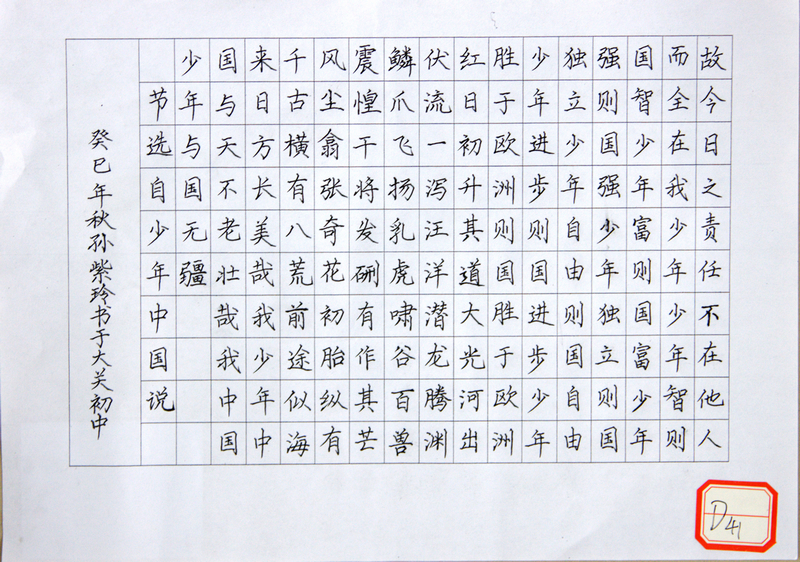 故今日之责任不在他人
而全在我少年少年智则
国智少年富则国富少年
强则国强少年独立则国
独立少年自由则国自由
少年进步则国进步少年
胜于欧洲则国胜于欧洲
红日初升其道大光河出
伏流一泻汪洋潜龙腾渊
鳞爪飞扬乳虎啸谷百兽
震惶干将发硎有作其芒
风尘翕张奇花初胎纵有
千古横有八荒前途似海
来日方长美哉我少年中
国与天不老壮哉我中国
少年与国无疆
节选自少年中国说
癸巳年秋孙紫玲书于大关初中
D41